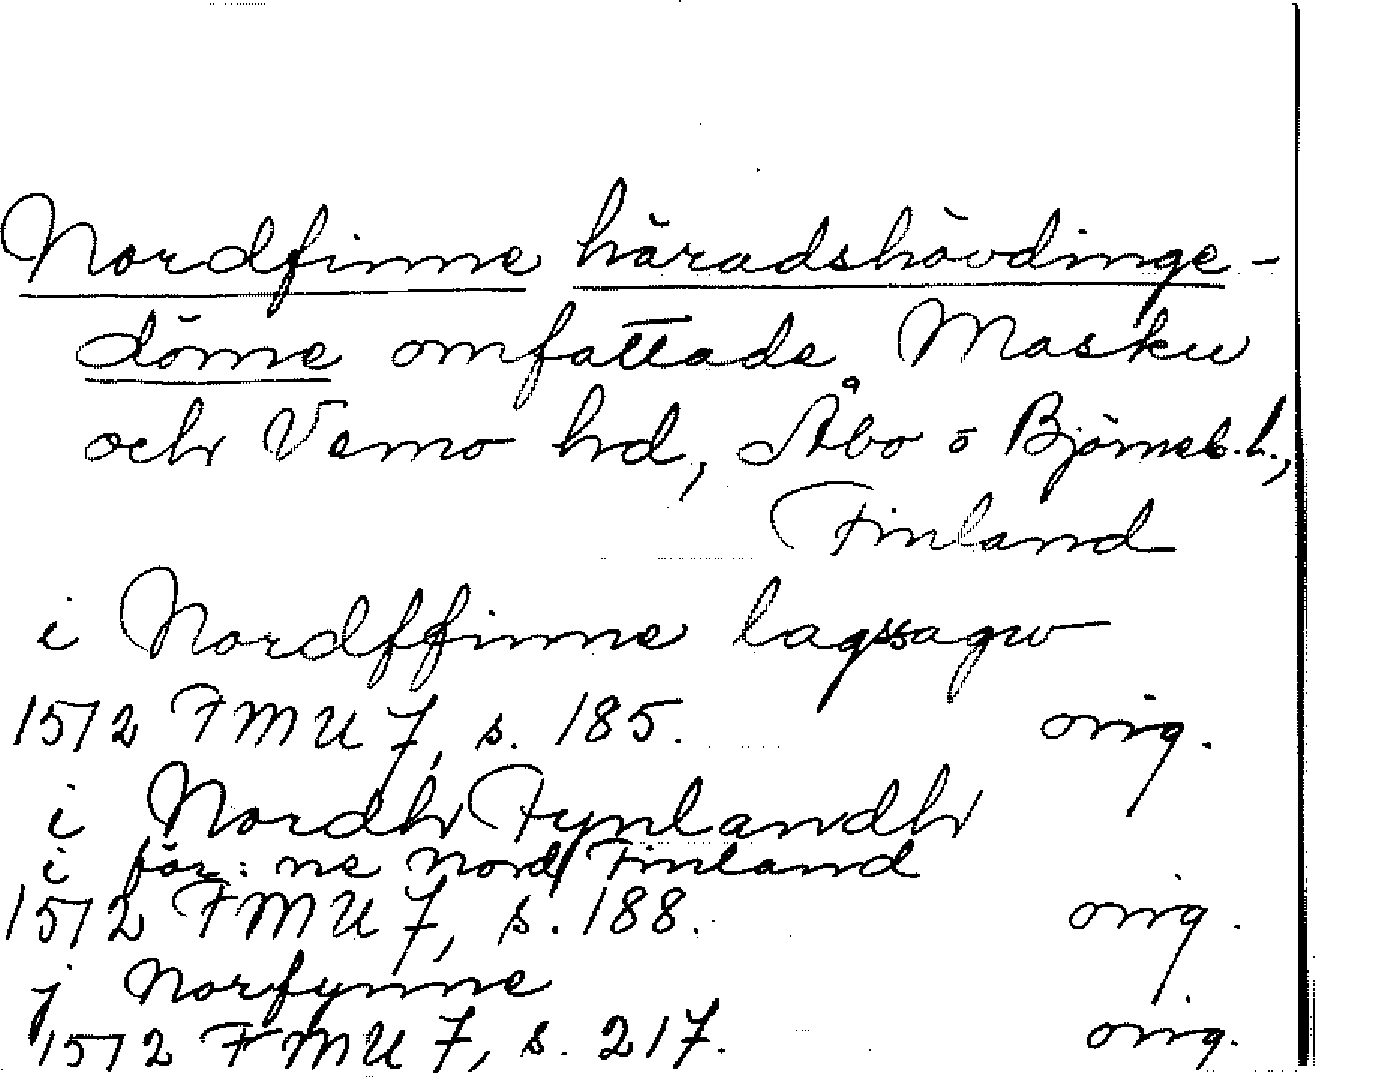 Nordfinne häradshövdinge-
döme omfattade Masku
och Vemo hd, Åbo o Björneb. l.,
Finland
i Nordffinne lagsagu
1512 FMU 7, s. 185. orig.
i Nordh Fynlandh
i för: ne Nord Finland
1512 FMU 7, s. 188. orig.
j Norfynne
1512 FMU 7, s. 217. orig.